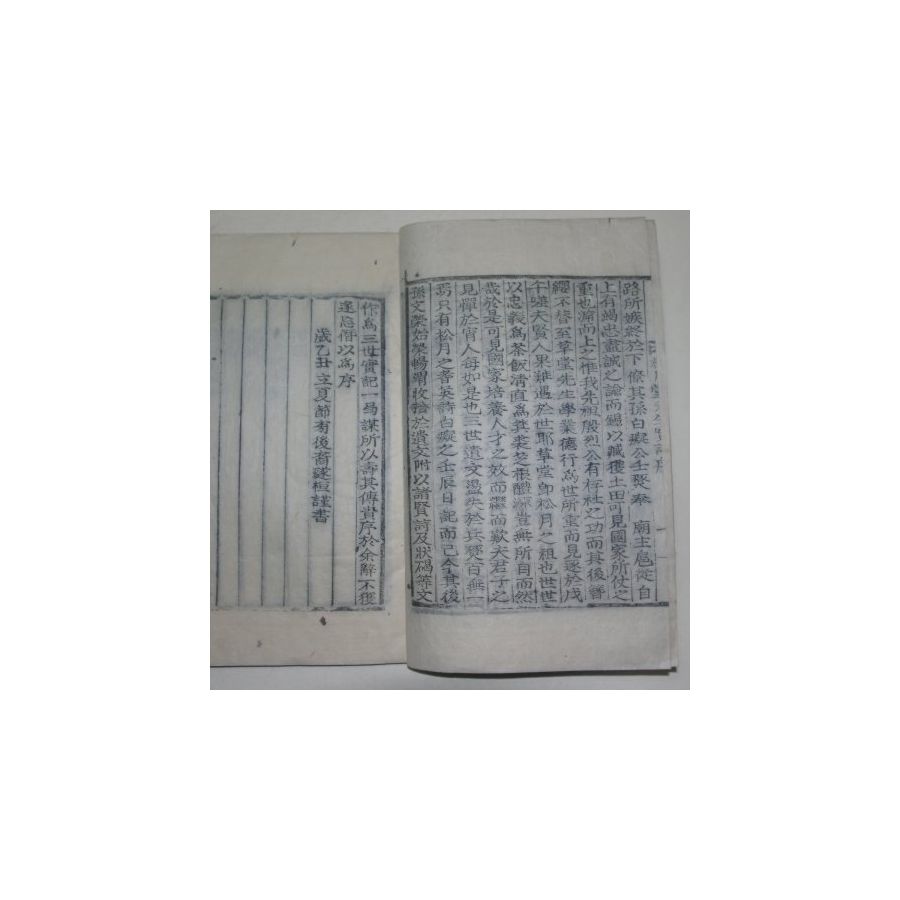 路所嫉終於下僚其孫白癡公壬亂奉 廟主扈從自
上有竭忠盡誠之諭而錫以臧獲土田可見國家所仗之
重也溯而上之惟我先祖殷烈公有存社之功而其後簪
纓不替至草堂先生學業德行爲世所重而見逐於戊
午噫夫賢人果難遇於世耶草堂卽松月之祖也世世
以忠義爲茶飯淸直爲箕裘芝根醴源豈無所自而然
哉於是可見國家培養人才之效而繼而歎夫君子之
見憚於宵人每如是也三世遺文盪失於兵燹百無一
焉只有松月之耆英詩白癡之壬辰日記而已今其後
孫文榮始榮暢渭收拾於遺文附以諸賢詩及狀碣等文
作爲三世實記一局謀所以壽其傳責序於余辭不獲
逢忘僭以爲序
歲乙丑立夏節 後裔 桓謹書